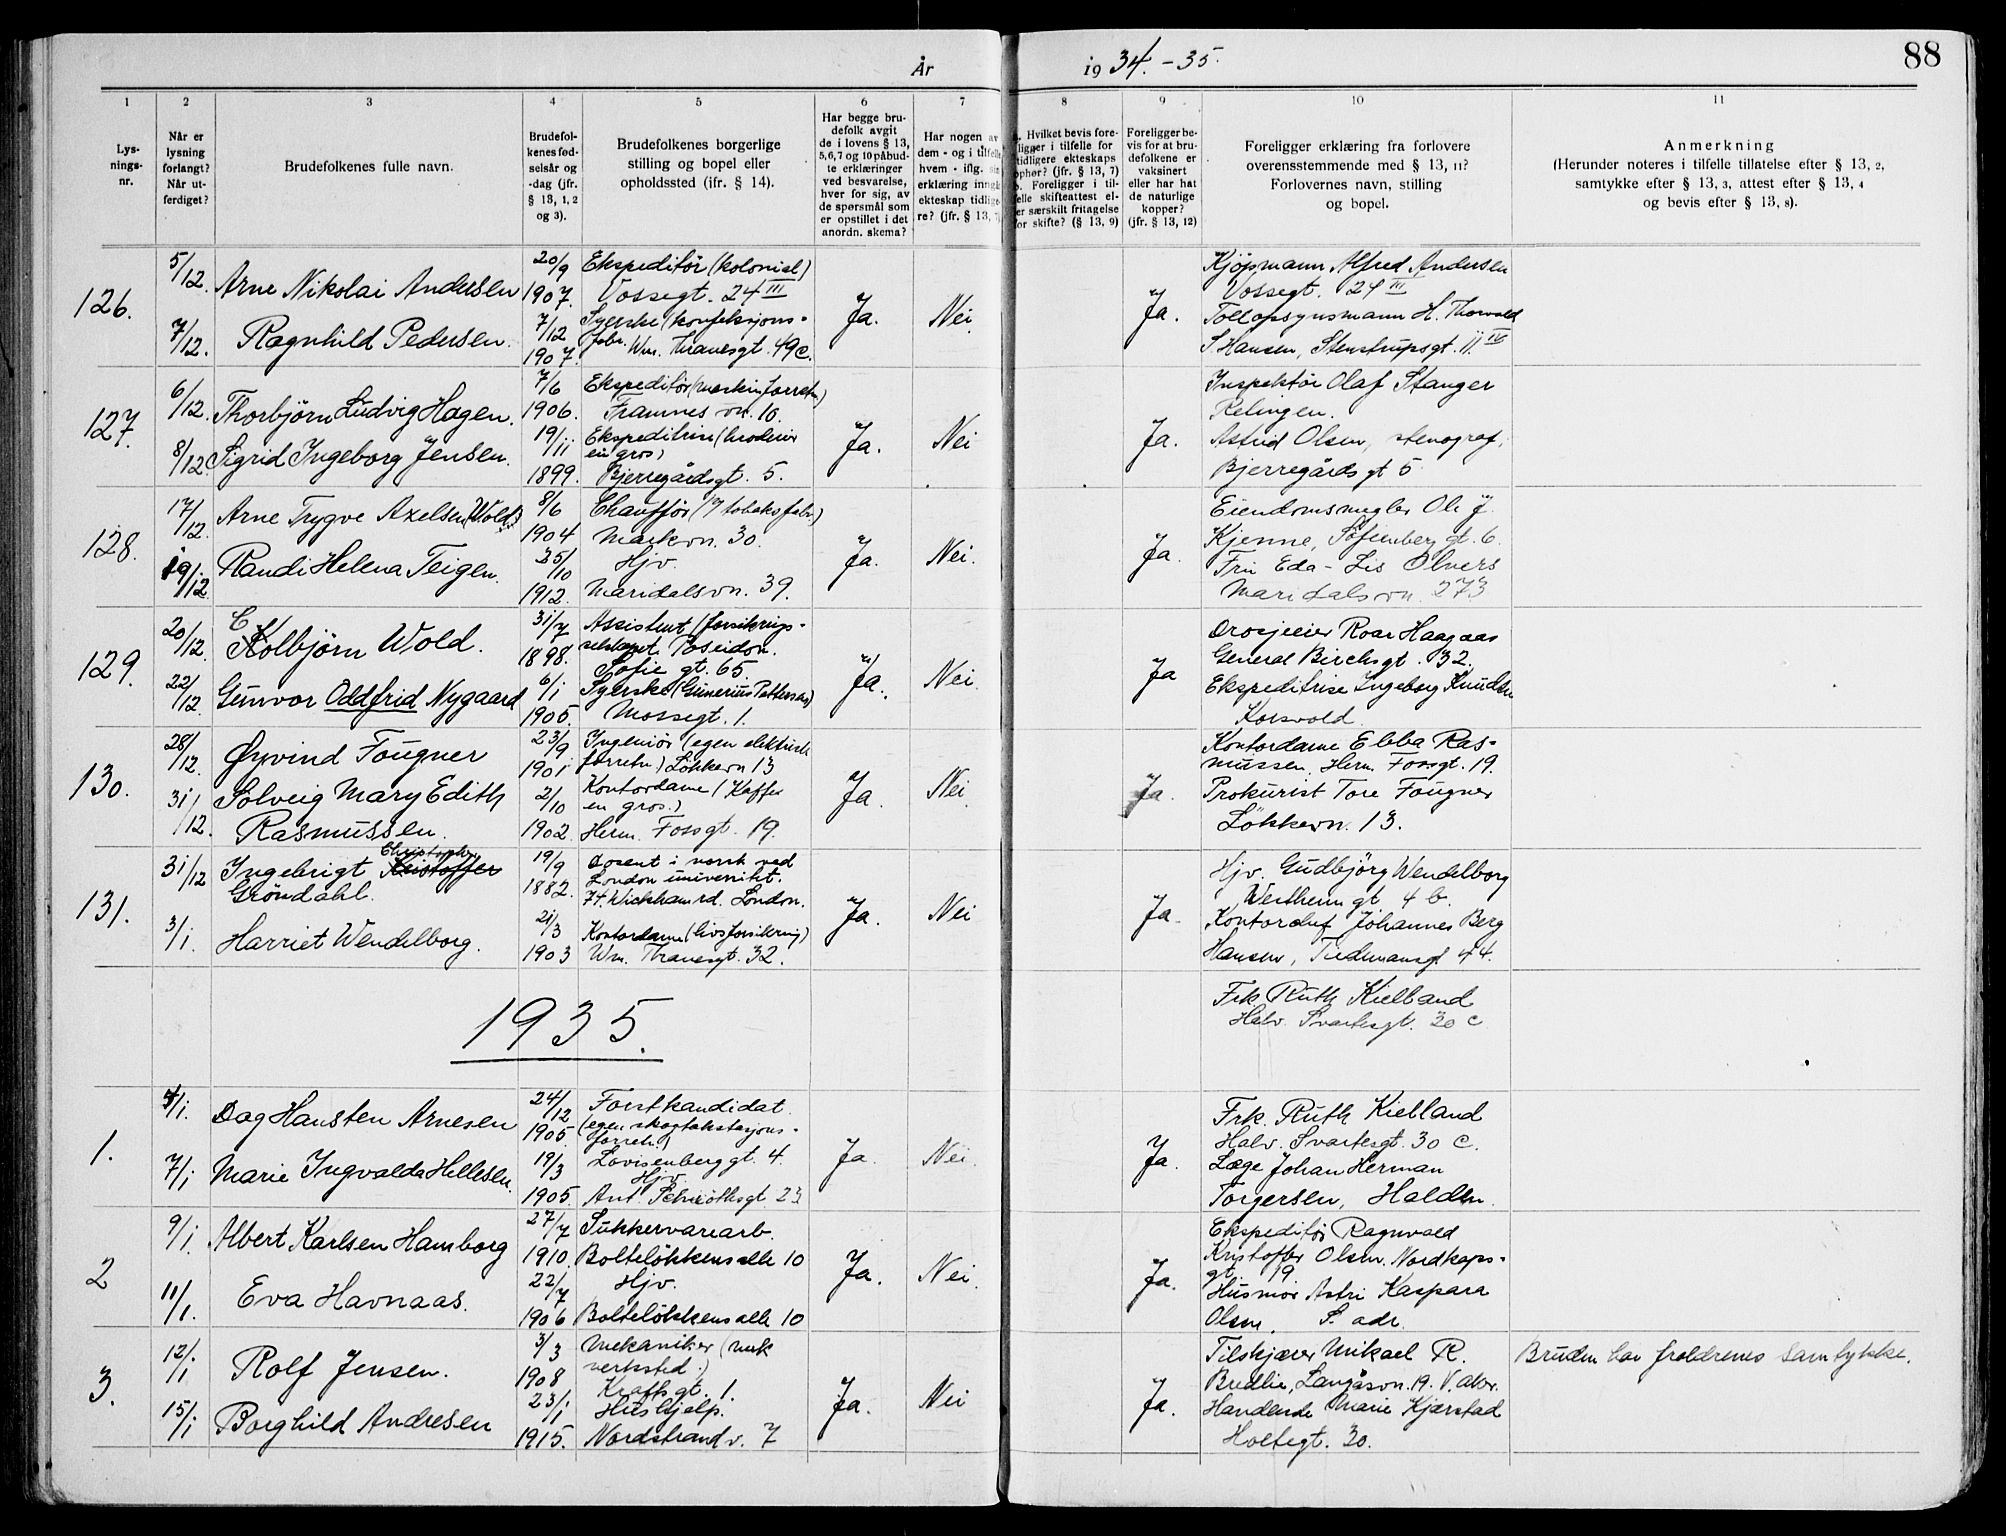 År 1934.-35.
88
1 2 3 4 5 6 7 8 9 10 11
Lys-
nings-
nr.
Når er
lysning
forlangt?
Når ut-
ferdiget?
Brudefolkenes fulle navn.
Brudefol-
kenes fød-
selsår og
-dag (jfr.
§ 13, 1, 2
og 3).
Brudefolkenes borgerlige
stilling og bopel eller
opholdssted (ifr. § 14).
Har begge bru-
defolk avgit
de i lovens § 13,
5,6,7 og 10 påbud-
te erklæringer
ved besvarelse,
hver for sig, av
de spørsmål som
er opstillet i det
anordn. skema?
Har nogen av
dem - og i tilfelle
hvem - iflg. sin
erklæring inngått
ekteskap tidlige-
re? (jfr. § 13, 7)
a. Hvilket bevis fore-
ligger i tilfelle for
tidligere ekteskaps
ophør? (jfr. § 13, 7)
b. Foreligger i til-
felle skifteattest el-
ler særskilt fritagelse
for skifte? (§ 13, 9)
Foreligger be-
vis for at bru-
defolkene er
vaksinert
eller har hat
de naturlige
kopper?
(jfr. § 13, 12)
Foreligger erklæring fra forlovere
overensstemmende med § 13, 11?
Forlovernes navn, stilling
og bopel.
Anmerkning
(Herunder noteres i tilfelle tillatelse efter § 13, 2,
samtykke efter § 13, 3, attest efter § 13, 4
og bevis efter § 13, 8).
126.
5/12.
7/12.
Arne Nikolai Andersen
Ragnhild Pedersen.
20/9
1907.
7/12
1907.
Ekspeditör (kolonial)
Vossegt. 24 III
Syerske (konfeksjons-
fabr. Wm. Thranesgt. 49c.
Ja.
Nei
Ja.
Kjöpmann Alfred Andersen
Vossegt. 24 III
Tollopsynsmann H. Thorvald
S Hansen, Stenstrupsgt. 11. IV
127.
6/12.
8/12
Thorbjörn Ludvig Hagen.
Sigrid Ingeborg Jensen.
7/6
1906.
19/11
1899.
Ekspeditör (maskinforretn)
Framnes vn. 10.
Ekspeditrise (broderier
en gros)
Bjerregårdsgt. 5.
Ja.
Nei
Ja.
Inspektör Olaf Stanger
Relingen.
Astrid Olsen, stenograf,
Bjerregårds gt 5
128.
17/12.
19/12
Arne Trygve Axelsen (Wold)
Randi Helena Teigen.
8/6
1904
25/10
1912.
Chaufför (tobaksfabr.)
Markvn. 30.
Hjv.
Maridalsvn. 39.
Ja.
Nei.
Ja
Eiendomsmegler Ole J.
Kjenne, Sofienberg gt. 6.
Fru Eda-Lis Olvers
Maridalsvn. 273
129.
20/12.
22/12.
C
Kolbjörn Wold.
Gunvor Oddfrid Nygaard
31/7
1898.
6/1
1905.
Assistent (forsikrings-
selskapet Poseidon.
Sofie gt. 65.
Syerske (Gunerius Pettersen)
Mossegt. 1.
Ja.
Nei.
Ja
Drosjeeier Roar Haagaas
General Birchsgt. 32.
Ekspeditrise Ingeborg Knudsen
Korsvold.
130.
28/12.
31/12.
Øyvind Fougner
Solveig Mary Edith
Rasmussen.
23/9
1901
2/10
1902
Ingeniör (egen elektrisk
forretn.) Lökkevn 13
Kontordame (Kaffe
en gros.)
Herm. Fossgt. 19.
Ja.
Nei
Ja.
Kontordame Ebba Ras-
mussen, Herm. Fossgt. 19.
Prokurist Tore Fougner
Lökkevn. 13.
131.
31/12
3/1.
Christopher
Ingebrigt Kristoffer
Gröndahl.
Harriet Wendelborg.
19/9
1882.
21/3
1903
Dosent i norsk ved
London universitet.
74. Wickham rd. London.
Kontordame (livsforsikring)
Wm. Thranesgt. 32.
Ja.
Nei
Ja.
Hjv. Gudbjörg Wendelborg
Wertheim gt 4 b.
Kontorchef Johannes Berg
Hansen, Tidemansgt 44.
Frk. Ruth Kielland
Halv. Svartesgt. 30 c.
1935.
1.
4/1.
7/1
Dag Hansten Arnesen
Marie Ingvalda Hellesen.
24/12
1905.
19/3
1905.
Forstkandidat.
(egen skogtakstasjons-
forretn.)
Lovisenberg gt. 4.
Hjv.
Ant. Schiöthsgt. 23
Ja
Nei.
Ja.
Frk. Ruth Kielland
Halv. Svartesgt. 30 c.
Læge Johan Herman
Torgersen, Halden.
2
9/1.
11/1.
Albert Karlsen Hamborg
Eva Havnaas.
27/7
1910.
22/7
1906
Sukkervarearb.
Boltelökkens alle 10
Hjv.
Boltelökkens alle 10
Ja.
Nei.
Ja.
Ekspeditör Ragnvald
Kristoffer Olsen. Nordkaps-
gt. 19
Husmor Astri Kaspara
Olsen, S. adr.
3.
12/1
15/1
Rolf Jensen.
Borghild Andresen
3/3
1908
23/1
1915.
Mekaniker (mek
verksted.)
Krafts gt. 1.
Hushjelp.
Nordstrand v. 7
Ja.
Nei
Ja.
Tilskjærer Mikael R.
Bredlie, Langåsvn. 19. V. Aker.
Handlende Marie Kjærstad
Holtegt. 30.
Bruden har foreldrenes samtykke.